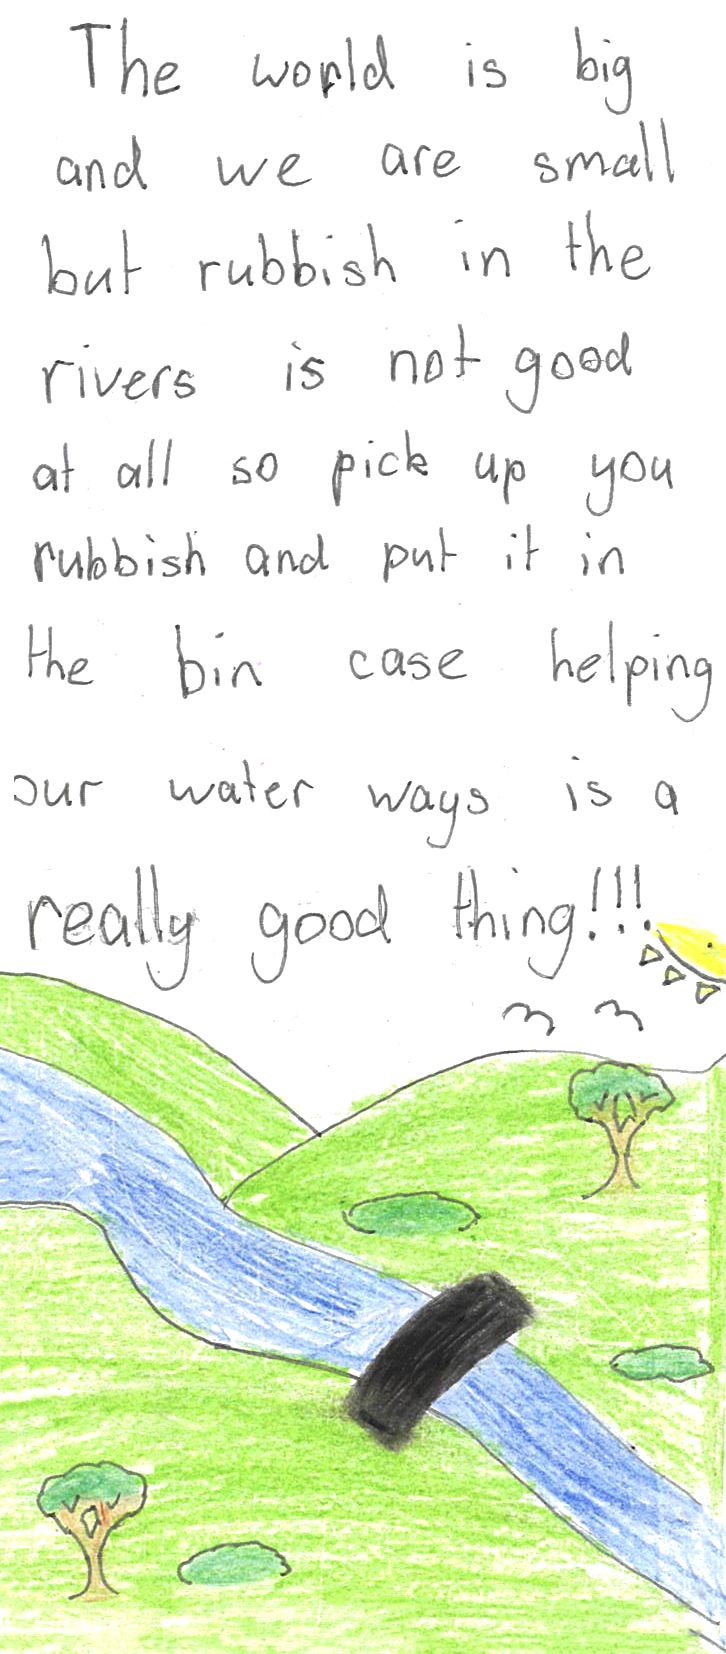 The world is big
and we are small
but rubbish in the
rivers is not good
at all so pick up you
rubbish and put it in
the bin case helping
our water ways is a
really good thing!!!